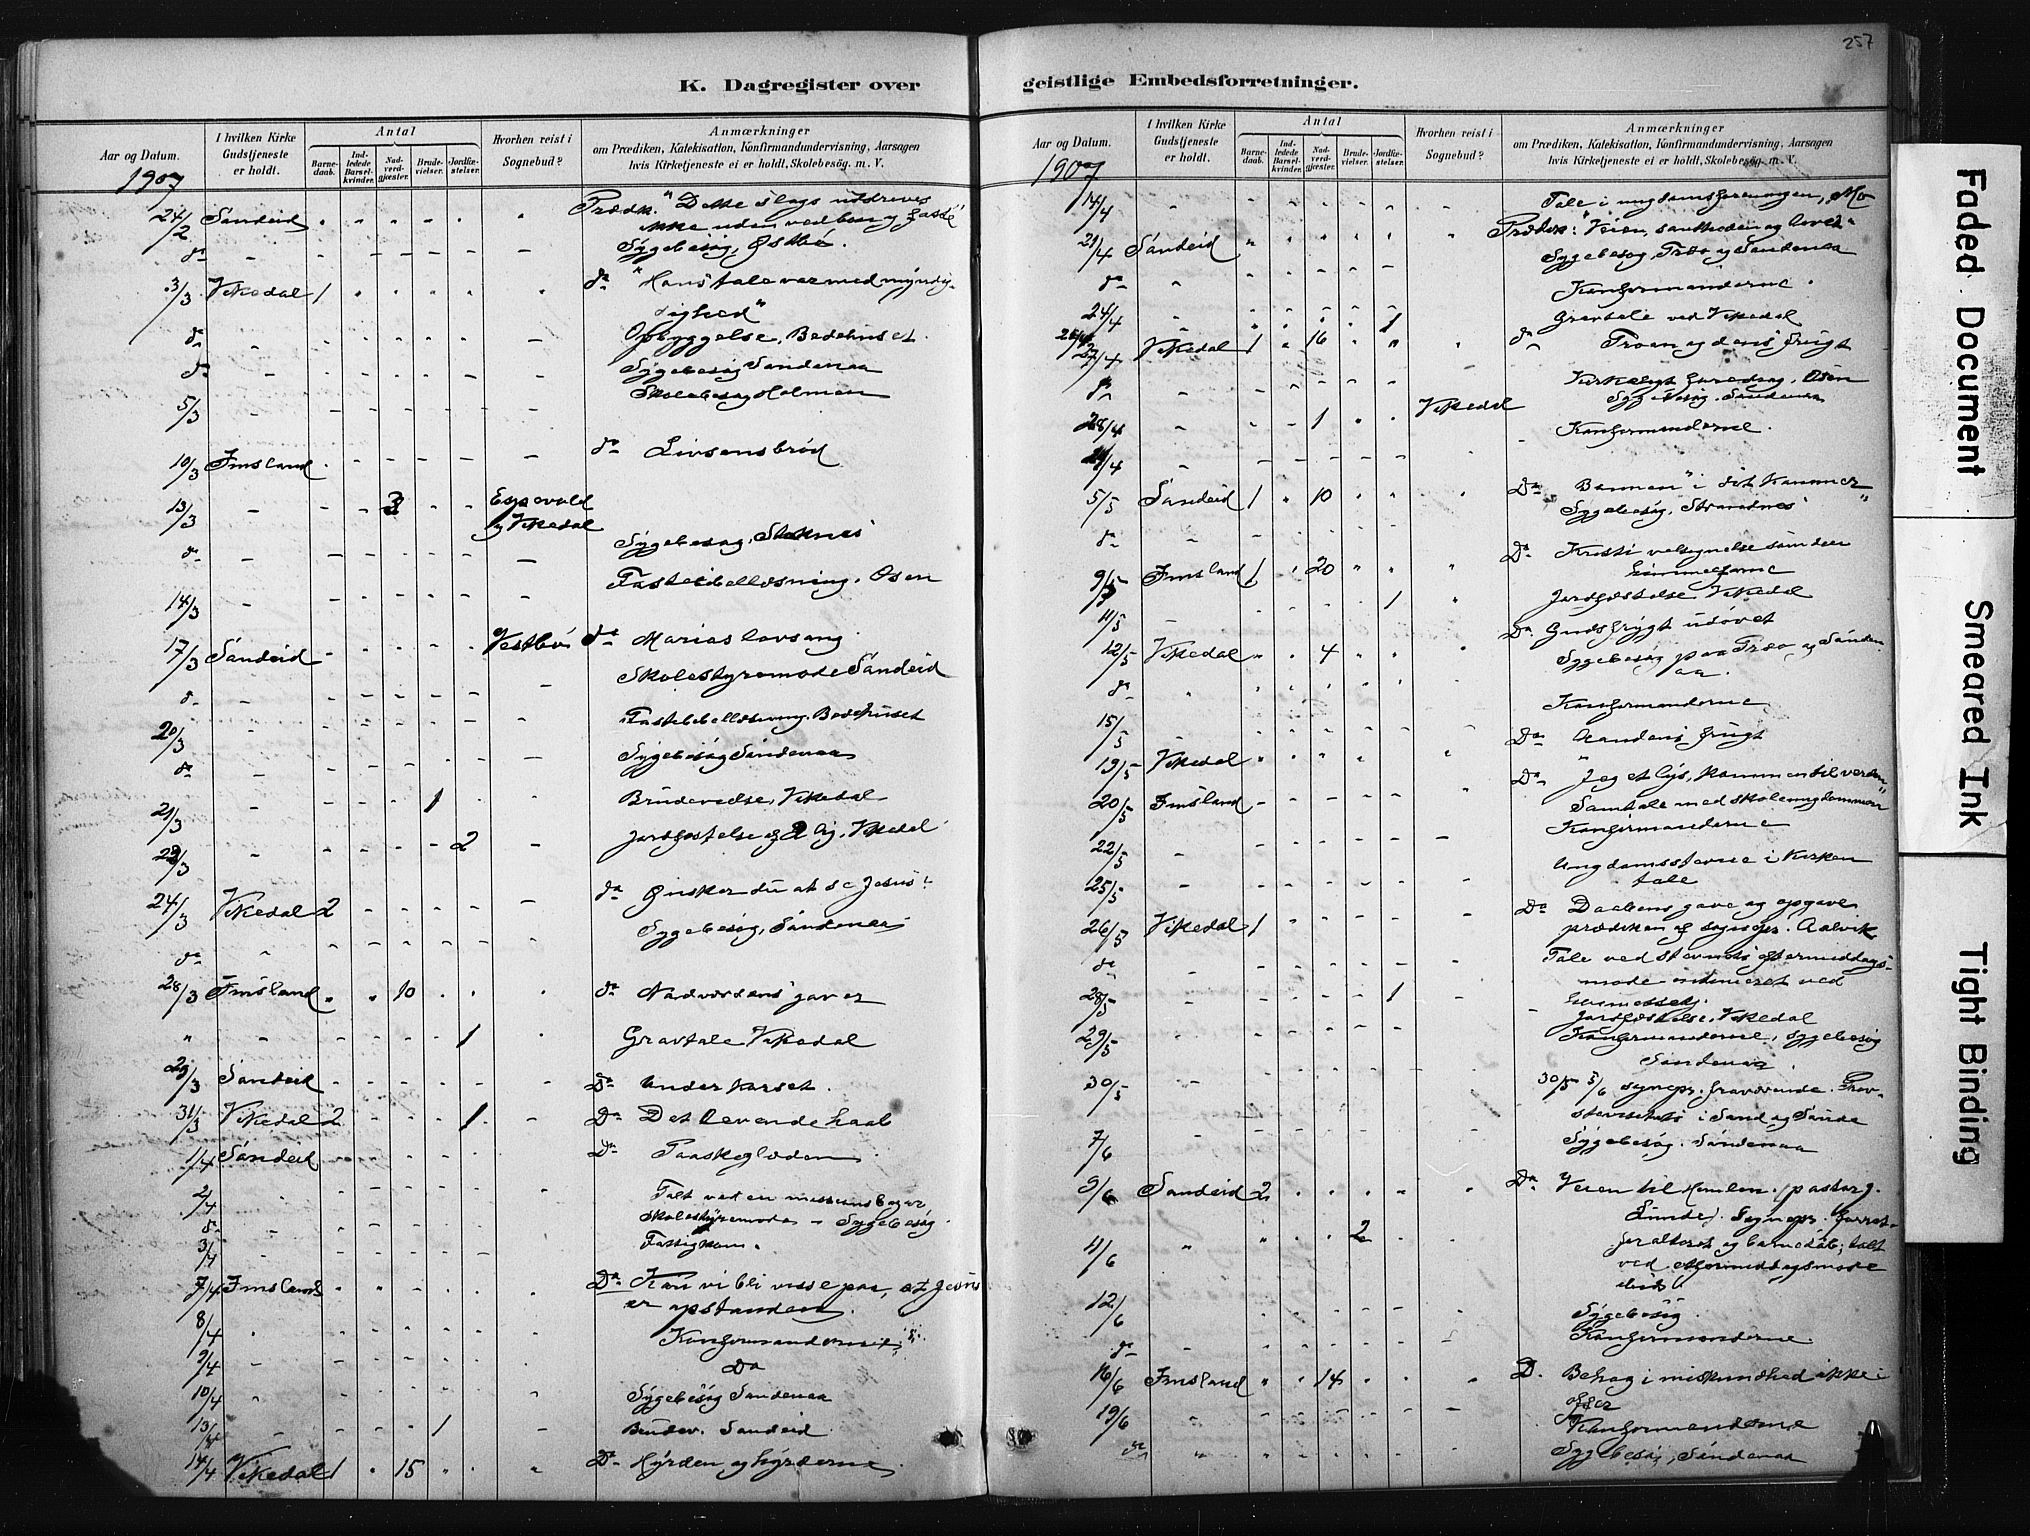 257
K. Dagregister over
geistlige Embedsforretninger.
Aar og Datum.
I hvilken Kirke Gudstjeneste er holdt.
Antal
Barnedaab.
Indledede Barselkvinder.
Nadverdgjæster.
Brudevielser.
Jordfæstelser.
Hvorhen reist i Sognebud?
Anmærkninger
om Prædiken, Katekisation, Konfirmandundervisning, Aarsagen
hvis Kirketjeneste ei er holdt, Skolebesøg. m. V.
1907
24/2 Sandeid Prædk. "Dette slags uddreves
ikke uden ved bøn og faste"
da Sygebesøg, Østbø.
3/3 Vikedal 1 da "Hans tale var med myndig-
hed"
da Opbyggelse, Bedehuset.
da Sygebesøg Søndenaa
5/3 Skolebesøg Holmen
10/3 Imsland da Livsens brød
13/3 3 Espevold
og Vikedal
da Sygebesøg, Stoknes
14/3 Fastebibellæsning. Osen
17/3 Sandeid Vestbø da Marias lovsang
da Skolestyremøde Sandeid
20/3 Fastebibellæsning. Bedehuset
da Sygebesøg Søndenaa
21/3 1 Brudevielse, Vikedal
23/3 2 Jordfæstelse af 2 lig. Vikedal
24/3 Vikedal 2 da Ønsker du at se Jesus?
da Sygebesøg, Søndenaa
28/3 Imsland 10 da Nadverdens gaver
1 Gravtale Vikedal
29/3 Sandeid Da Under korset.
31/3 Vikedal 2 1 Da Det levende haab
1/4 Sandeid Da Paaskeglæden
2/4 Talt ved en missionsbazar
da Skolestyremøde - Sygebesøg.
3/4 Fattigkom.
7/4 Imsland Da Kan vi bli visse paa, at Jesus
er opstanden.
8/4 Konfirmanderne
9/4 Da
10/4 Sygebesøg Søndenaa
13/4 1 Brudev. Sandeid
14/4 Vikedal 1 15 Da Hyrden og hyrderne
Aar og Datum.
I hvilken Kirke Gudstjeneste er holdt.
Antal
Barnedaab.
Indledede Barselkvinder.
Nadverdgjæster.
Brudevielser.
Jordfæstelser.
Hvorhen reist i Sognebud?
Anmærkninger
om Prædiken, Katekisation, Konfirmandundervisning, Aarsagen
hvis Kirketjeneste ei er holdt, Skolebesøg. m. V.
1907
14/4 Tale i ungdomsforeningen,
21/4 Sandeid Prædik: "Veien, sandheden og livet"
da Sygebesøg, Træo og Søndenaa
24/4 Konfirmanderne.
1 Gravtale ved Vikedal
Vikedal 1 16 da Troen og dens frugt
27/4
da Kirkeligt foredrag, Osen
28/4 1 Vikedal Sygebesøg. Søndenaa
Konfirmanderne.
5/5 Sandeid 1 10 Da Bønnen "i dit kammer"
da Sygebesøg, Strandnes
9/5 Imsland 1 20 Da Kristi velsignelse som den
himmelfarne
11/5 1 Jordfæstelse Vikedal
12/5 Vikedal 4 Da Gudsfrygt udøvet
da Sygebesøg paa Træo og Sønden-
aa.
15/5 Konfirmanderne
19/5 Vikedal Da Aandens frugt
20/5 Imsland Da "Jeg et lys, kommen til verden"
Samtale med skoleungdommen
22/5 Konfirmanderne
25/5 Ungdomsstevne i Kirken
tale
26/5 Vikedal 1 Da Daabens gave og opgave
prædiken af sognepr. Aalvik
da Tale ved stevnets eftermiddags-
møde
28/5 1
Jordfæstelse, Vikedal
29/5 Konfirmanderne, sygebesøg
Søndenaa.
30/5 30/5 5/6 sognepr. fraværende. Prov-
stevisitats i Sand og Saude
7/6 Sygebesøg. Søndenaa
9/6 Sandeid 2 Da Veien til Himlen. (pastor
Lunde). Sognepr. forret.
for alteret og barnedaab; talt
11/6 2 ved eftermiddagsmøde
12/6 Sygebesøg.
da Konfirmanderne.
16/6 Imsland 14 D. Behag i miskundhed ikke i
offer
19/6 Konfirmanderne
da Sygebesøg, Søndenaa
Faded Document
Smeared Ink
Tight Binding